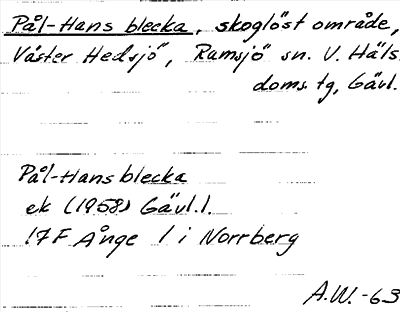 Pål-Hans blecka, skoglöst område,
Väster Hedsjö, Ramsjö sn. V. Häls.
doms. tg, Gävl.
Pål-Hans blecka
ek (1958) Gävl.l.
17F Ånge 1 i Norrberg
A.W.-63